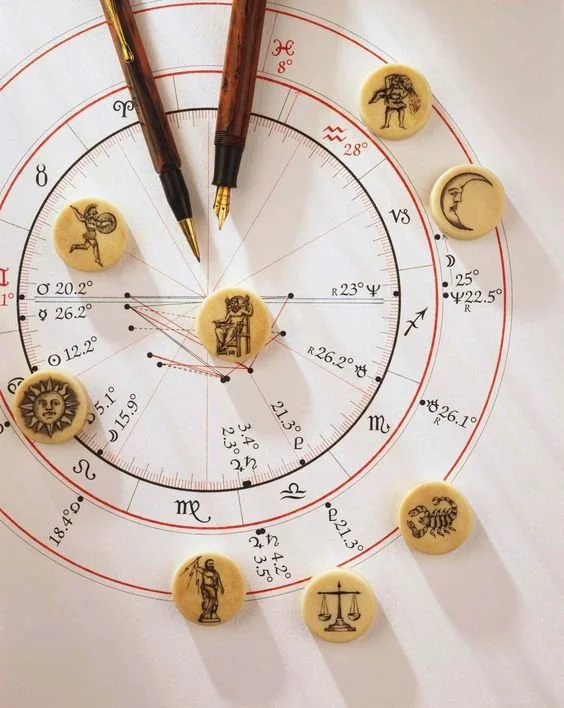 ♓
8°
♒
28°
♈
♉
♑
♊
1°
♂ 20.2°
☿ 26.2°
☉ 12.2°
5.1°
☽ 15.9°
R 23° ♆
☽
25°
♆ 22.5°
R
♐
R 26.2° ♅
♅ 26.1°
R
♏
21.3°
♇
3.4° ♄
2.3° ♃
♎
♍
♌
18.4°
♄ 4.2°
♃ 3.5°
♇ 21.3°